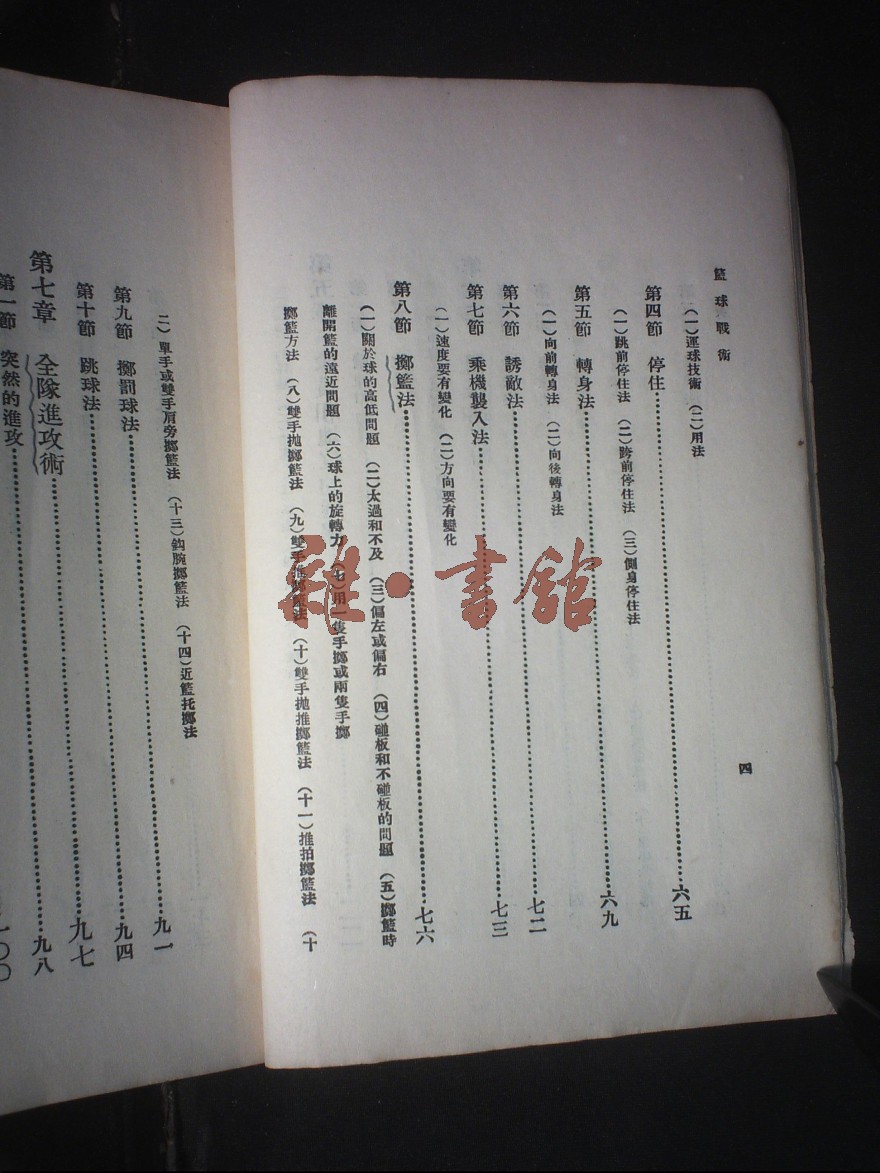 籃球戰術 四
(一)運球技術 (二)用法
第四節 停住……六五
(一)跳前停住法 (二)跨前停住法 (三)側身停住法
第五節 轉身法……六九
(一)向前轉身法 (二)向後轉身法
第六節 誘敵法……七二
第七節 乘機襲入法……七三
(一)速度要有變化 (二)方向要有變化
第八節 擲籃法……七六
(一)關於球的高低問題 (二)太過和不及 (三)偏左或偏右 (四)碰板和不碰板的問題 (五)擲籃時
離開籃的遠近問題 (六)球上的旋轉力 (七)用一隻手擲或兩隻手擲
擲籃方法 (八)雙手拋擲籃法 (九)雙手推擲籃法 (十)雙手拋推擲籃法 (十一)推拍擲籃法 (十
二)單手或雙手肩旁擲籃法 (十三)鈎腕擲籃法 (十四)近籃托擲法
第九節 擲罰球法……九一
第十節 跳球法……九四
第七章 全隊進攻術……九七
第一節 突然的進攻……九八
雜·書館